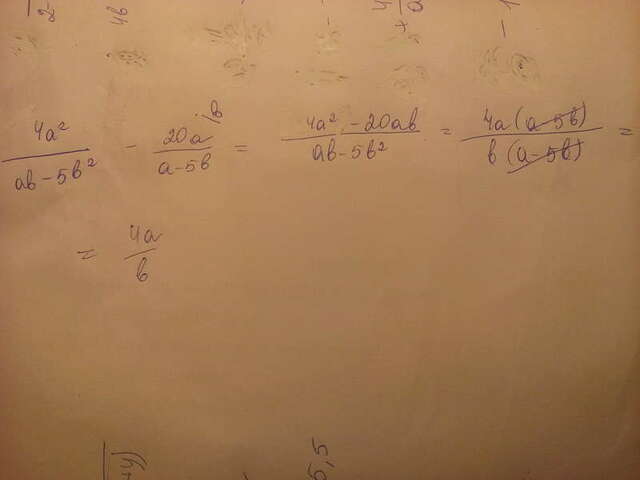 4a² / ab - 5b² - 20a \b / a - 5b = 4a² - 20ab / ab - 5b² = 4a(a - 5b) / b(a - 5b) =
= 4a / b
5,5